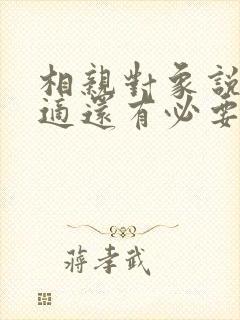 相親對象說
適還有必要
蔣孝武